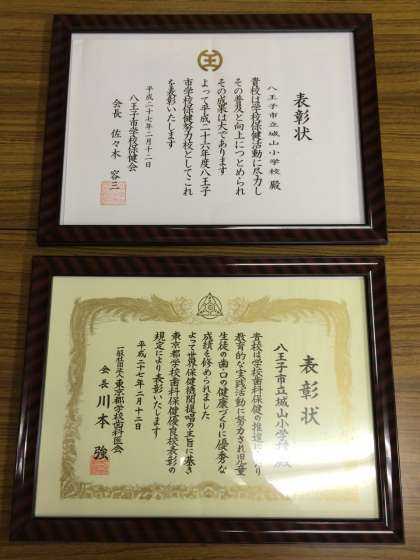 表彰状
八王子市立城山小学校 殿
貴校は学校保健活動に尽力し
その普及と向上につとめられ
その成果は大であります
よって平成二十六年度八王子
市学校保健努力校としてこれ
を表彰いたします
平成二十七年二月十二日
八王子市学校保健会
会長 佐々木 容三
表彰状
八王子市立城山小学校 殿
貴校は学校歯科保健の推進に
教育的な実践活動に努力され児童
生徒の歯口の健康づくりに優秀な
成績を修められました
よって世界保健機関提唱の主旨に基き
東京都学校歯科保健優良校表彰の
規定により表彰いたします
平成二十七年二月十二日
一般社団法人東京都学校歯科医会
会長 川本 強